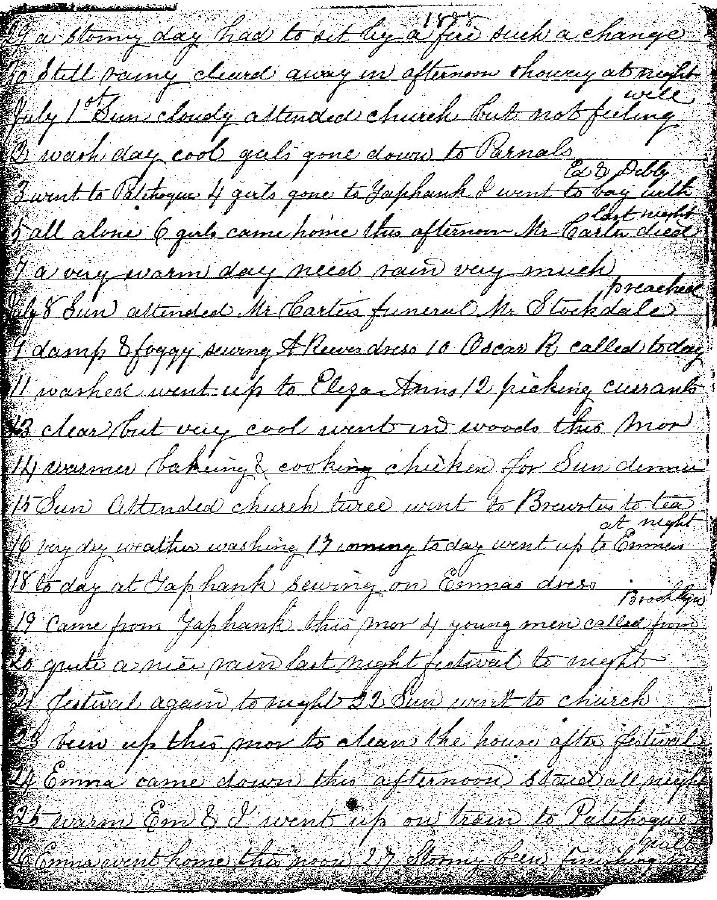 1888
29 a stormy day had to set by a fire such a change
30 Still rainy cleard away in afternoon showery at night
July 1st Sun cloudy attended church but not feeling well
2 wash day cool girls gone down to Parnals
3 went to Patchogue 4 girls gone to Yaphank I went to bay with Ed & Debby
5 all alone 6 girls came home this afternoon Mr Carter died last night
7 a very warm day need rain very much
July 8 Sun attended Mr Carters funeral Mr Stockdale preached
9 damp & foggy sewing A Reeves dress 10 Oscar R called to day
11 washed went up to Eliza Anns 12 picking currants
13 clear but very cool went in woods this mor
14 warmer bakeing & cooking chicken for Sun dinner
15 Sun Attended church twice went to Brewsters to tea
16 very dry weather washing 17 ironing to day went up to Emmas at night
18 to day at Yaphank sewing on Emmas dress
19 Came from Yaphank this mor 4 young men called from Brooklyn
20 quite a nice rain last night festival to night
21 festival again to night 22 Sun went to church
23 been up this mor to clean the house after festival
24 Emma came down this afternoon staid all night
25 warm Em & I went up on train to Patchogue
26 Emma went home this noon 27 Stormy been finishing my quilt